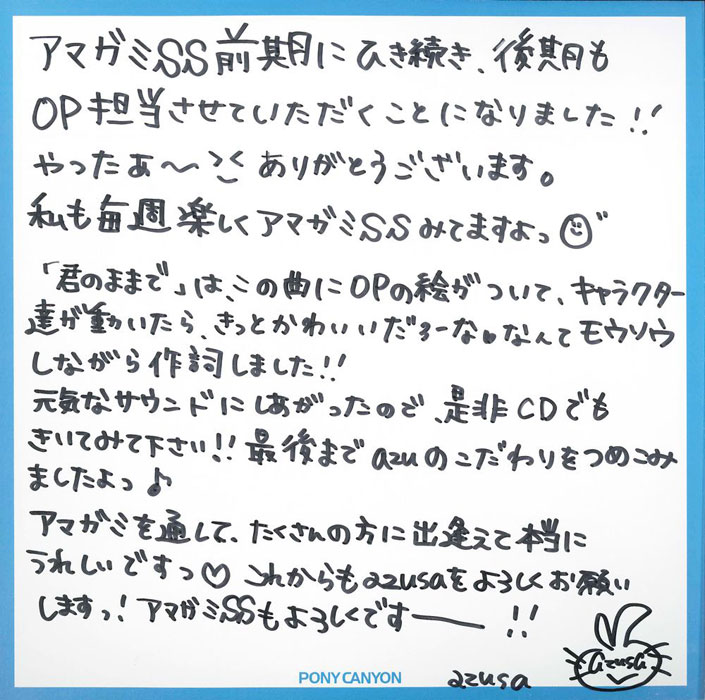 アマガミSS前期にひき続き、後期も
OP担当させていただくことになりました!!
やったぁ〜 ありがとうございます。
私も毎週楽しくアマガミSSみてますよっ
「君のままで」は、この曲にOPの絵がついて、キャラクター
達が動いたら、きっとかわいいだろーな。なんてモウソウ
しながら作詞しました!!
元気なサウンドにしあがったので、是非CDでも
きいてみて下さい!!最後までazuのこだわりをつめこみ
ましたよっ♪
アマガミを通して、たくさんの方に出逢えて本当に
うれしいですっ♡これからもazusaをよろしくお願い
しますっ!アマガミSSもよろしくですー!!
azusa
azusa
PONY CANYON